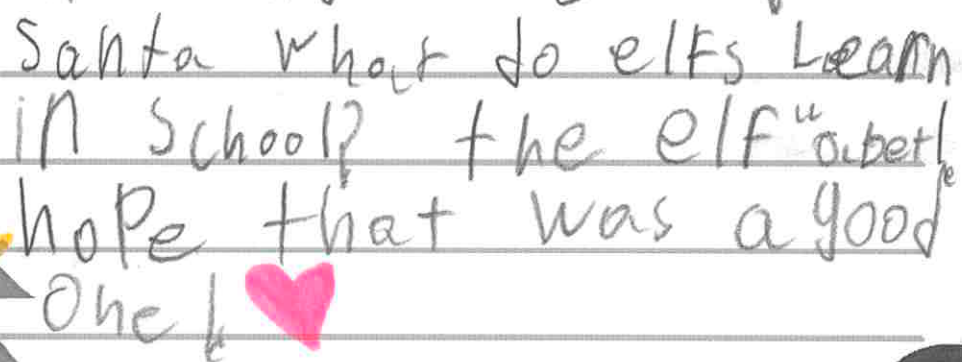 Santa what do elfs Learn
in School? the elf "abet!
hope that was a good
One!